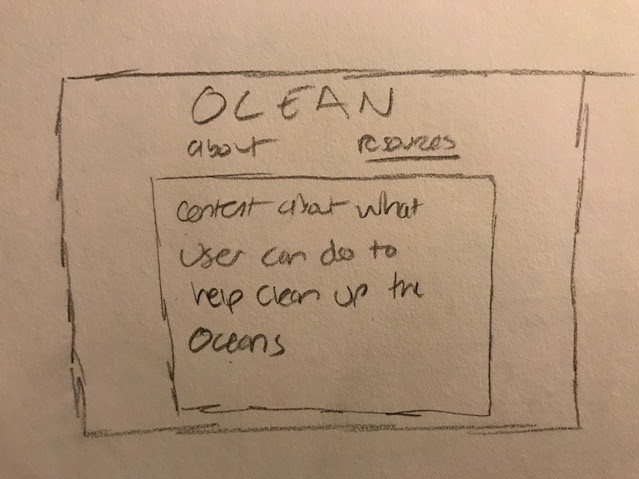 OCEAN
about resources
content about what
user can do to
help clean up the
Oceans